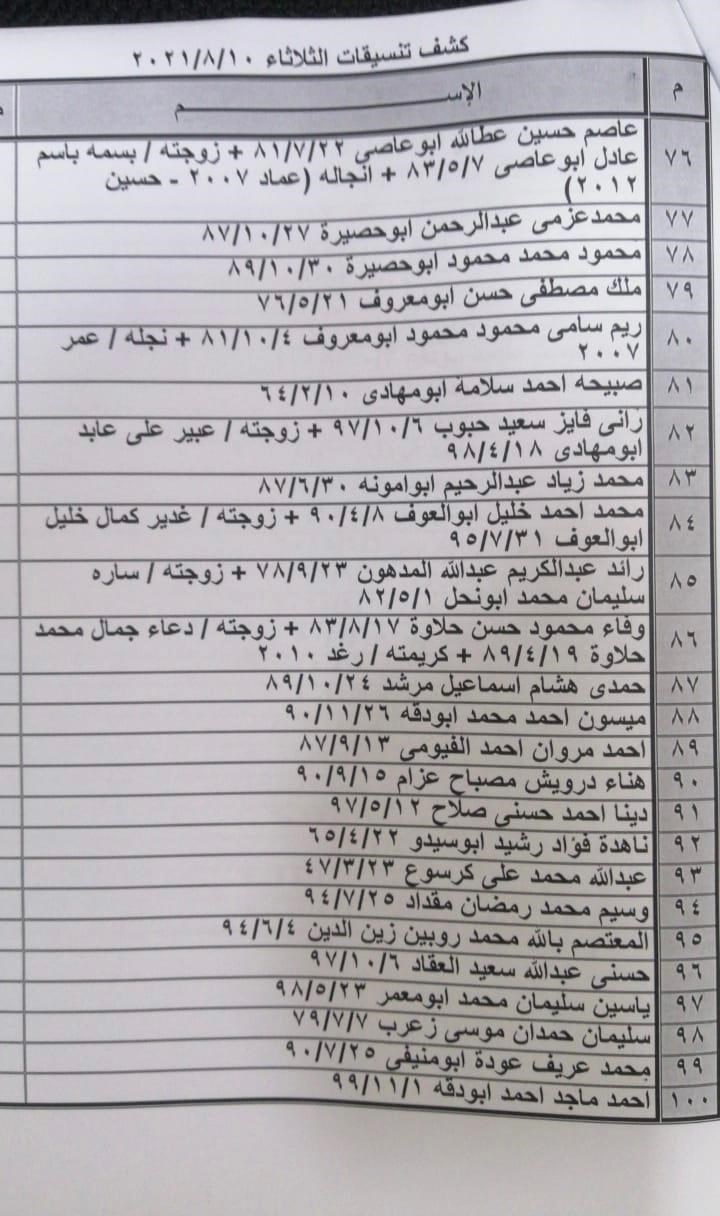 كشف تنسيقات الثلاثاء ٢٠٢١/٨/١٠
م الإســـــــــــــم م
٧٦ عاصم حسين عطالله ابوعاصى ٨١/٧/٢٢ + زوجته / بسمه باسم
عادل ابوعاصى ٨٣/٥/٧ + انجاله (عماد ٢٠٠٧ - حسين
٢٠١٢)
٧٧ محمدعزمى عبدالرحمن ابوحصيرة ٨٧/١٠/٢٧
٧٨ محمود محمد محمود ابوحصيرة ٨٩/١٠/٣٠
٧٩ ملك مصطفى حسن ابومعروف ٧٦/٥/٢١
٨٠ ريم سامى محمود محمود ابومعروف ٨١/١٠/٤ + نجله / عمر
٢٠٠٧
٨١ صبيحه احمد سلامة ابومهادى ٦٤/٢/١٠
٨٢ رانى فايز سعيد حبوب ٩٧/١٠/٦ + زوجته / عبير على عابد
ابومهادى ٩٨/٤/١٨
٨٣ محمد زياد عبدالرحيم ابوامونه ٨٧/٦/٣٠
٨٤ محمد احمد خليل ابوالعوف ٩٠/٤/٨ + زوجته / غدير كمال خليل
ابوالعوف ٩٥/٧/٣١
٨٥ رائد عبدالكريم عبدالله المدهون ٧٨/٩/٢٣ + زوجته / ساره
سليمان محمد ابونحل ٨٢/٥/١
٨٦ وفاء محمود حسن حلاوة ٨٣/٨/١٧ + زوجته / دعاء جمال محمد
حلاوة ٨٩/٤/١٩ + كريمته / رغد ٢٠١٠
٨٧ حمدى هشام اسماعيل مرشد ٨٩/١٠/٢٤
٨٨ ميسون احمد محمد ابودقه ٩٠/١١/٢٦
٨٩ احمد مروان احمد الفيومى ٨٧/٩/١٣
٩٠ هناء درويش مصباح عزام ٩٠/٩/١٥
٩١ دينا احمد حسنى صلاح ٩٧/٥/١٢
٩٢ ناهدة فؤاد رشيد ابوسيدو ٦٥/٤/٢٢
٩٣ عبدالله محمد على كرسوع ٤٧/٣/٢٣
٩٤ وسيم محمد رمضان مقداد ٩٤/٧/٢٥
٩٥ المعتصم بالله محمد روبين زين الدين ٩٤/٦/٤
٩٦ حسنى عبدالله سعيد العقاد ٩٧/١٠/٦
٩٧ ياسين سليمان محمد ابومعمر ٩٨/٥/٢٣
٩٨ سليمان حمدان موسى زعرب ٧٩/٧/٧
٩٩ محمد عريف عودة ابومنيفى ٩٠/٧/٢٥
١٠٠ احمد ماجد احمد ابودقه ٩٩/١١/١